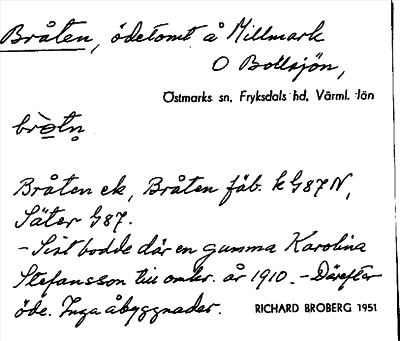 Bråten, ödetomt å Millmark
O Bollsjön,
Östmarks sn, Fryksdals hd, Värml. län
bròtn̥
Bråten ek, Bråten fäb. k G87N,
Säter G87.
- Sist bodde där en gumma Karolina
Stefansson till omkr. år 1910. - Därefter
öde. Inga åbyggnader.
RICHARD BROBERG 1951